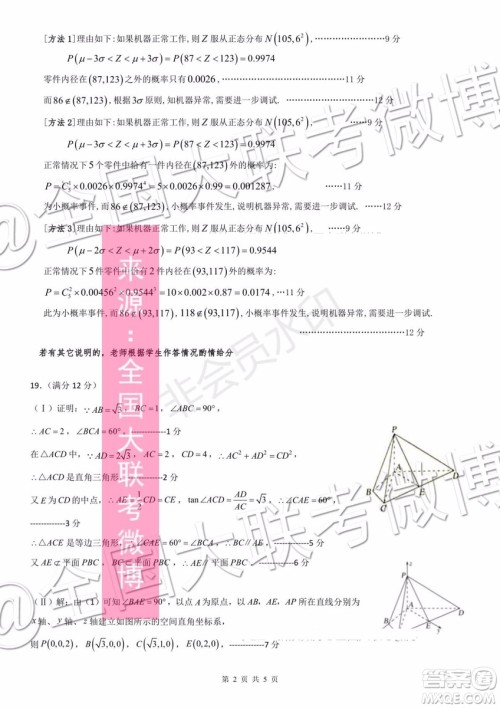 [方法 1]理由如下:如果机器正常工作,则 Z 服从正态分布 N(105,6²), ………………9 分
P(μ−3σ<Z<μ+3σ)=P(87<Z<123)=0.9974
零件内径在(87,123)之外的概率只有0.0026, ………………11 分
而86∉(87,123),根据3σ原则,知机器异常,需要进一步调试. ………………12 分
[方法 2]理由如下:如果机器正常工作,则 Z 服从正态分布 N(105,6²),
P(μ−3σ<Z<μ+3σ)=P(87<Z<123)=0.9974
正常情况下5个零件中恰有一件内径在(87,123)外的概率为:
P=C₅¹×0.0026×0.9974⁴=5×0.0026×0.99=0.001287. ……………11 分
为小概率事件,而小概率事件发生,说明机器异常,需要进一步调试. ……12 分
[方法 3]理由如下:如果机器正常工作,则 Z 服从正态分布 N(105,6²), ……9 分
P(μ−2σ<Z<μ+2σ)=P(93<Z<117)=0.9544
正常情况下5个零件中恰有2件内径在(93,117)外的概率为:
P=C₅²×0.0456²×0.9544³=10×0.002×0.87=0.0174, …11 分
此为小概率事件,而86∉(93,117), 118∉(93,117),说明机器异常,需要进一步调试. ……12 分
若有其它说明的,老师根据学生作答情况酌情给分
19.(满分 12 分)
(Ⅰ)证明: ∵AB=√3, BC=1, ∠ABC=90°,
∴AC=2, ∠BCA=60° -----------1 分
在△ACD中, ∵AD=2√3, AC=2, CD=4, ∴AC²+AD²=CD²
∴△ACD是直角三角形.
又E为CD的中点, ∴AE=½CD=CE, tan∠ACD=AD/AC=√3, ∴∠CAE=60°,
------------3 分
∴△ACE是等边三角形, ∴∠CAE=60°=∠BCA, ∴BC//AE, -----------5 分
又AE⊄平面PBC, BC⊂平面PBC, ∴AE//平面PBC. -----------6 分
(Ⅱ)解:由(1)可知∠BAE=90°,以点A为原点,以AB,AE,AP所在直线分别为
x轴、y轴、z轴建立如图所示的空间直角坐标系,
则P(0,0,2), B(√3,0,0), C(√3,1,0), E(0,2,0), ------------7 分
第 2 页 共 5 页
来源:全国大联考微博
非会员水印
@全国大联考微博